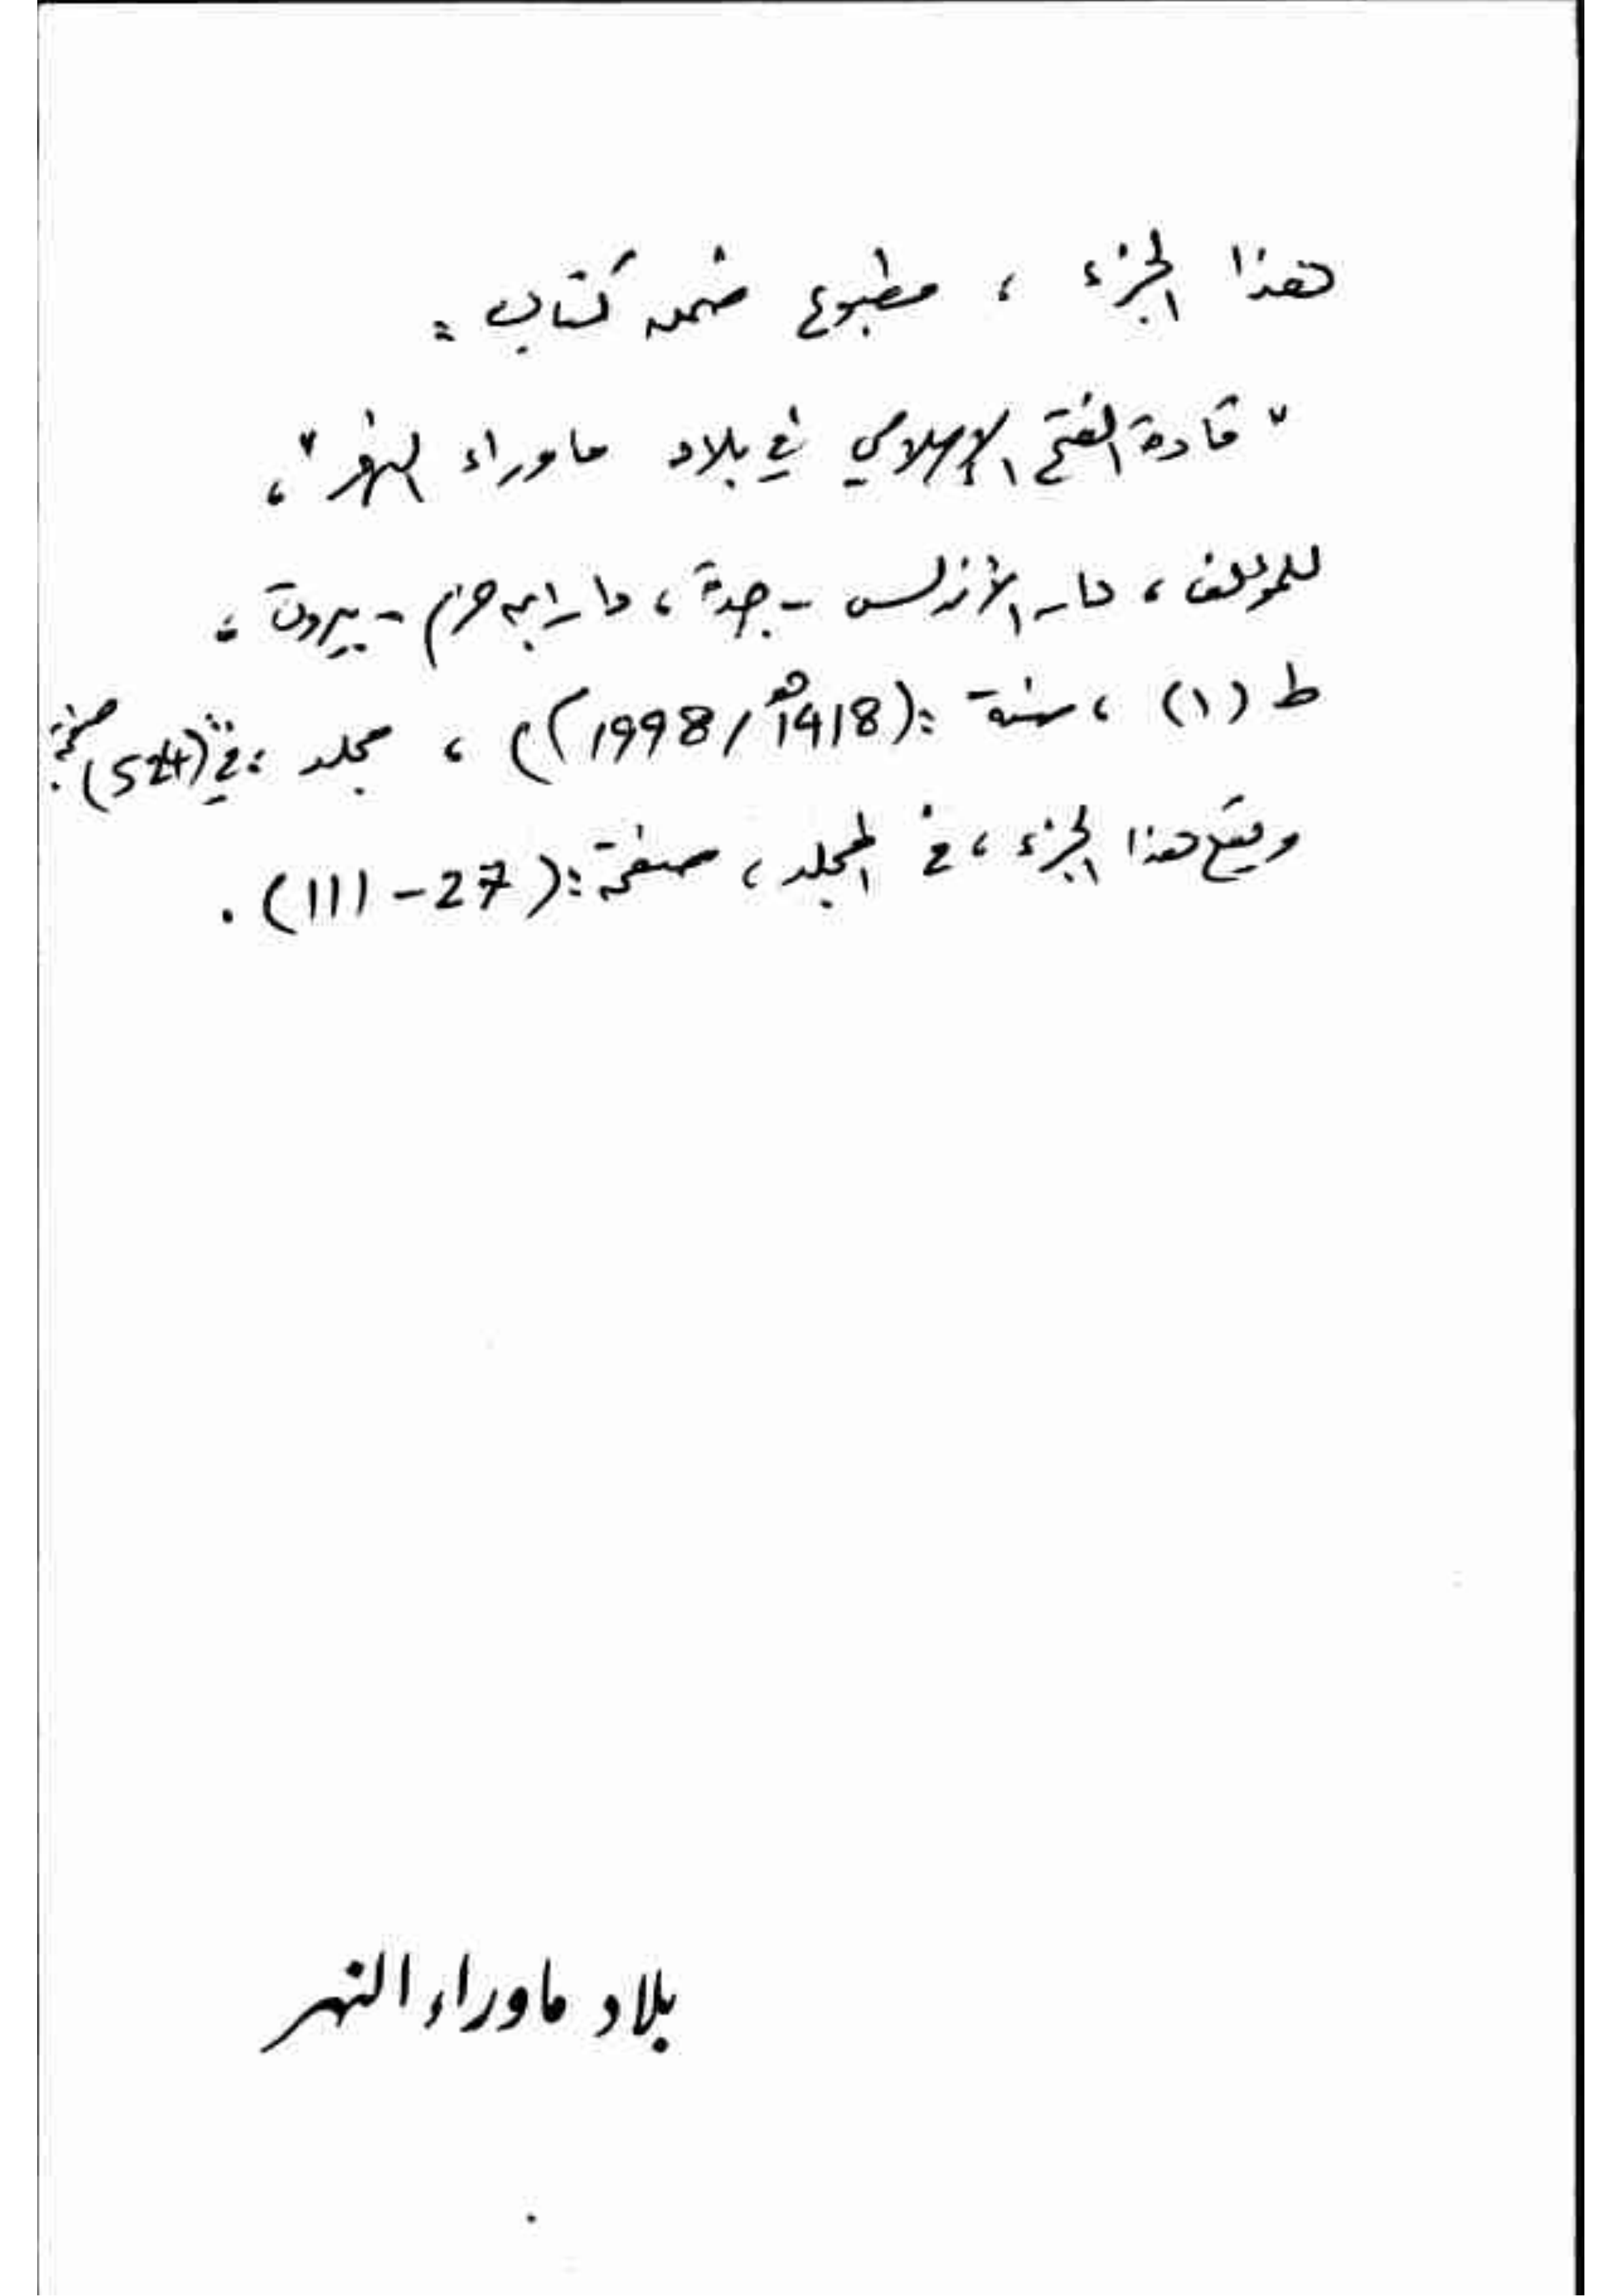 هذا الجزء ، مطبوع ضمن كتاب :
" قادة الفتح الإسلامي في بلاد ماوراء النهر " ،
للمؤلف ، دار الأندلس - جدة ، دار ابن حزم - بيروت ،
ط (١) ، سنة : (1418هـ / 1998م) ، مجلد ، في (524) صفحة .
ويقع هذا الجزء ، في المجلد ، صفحة : (27 - 111) .
بلاد ماوراء النهر